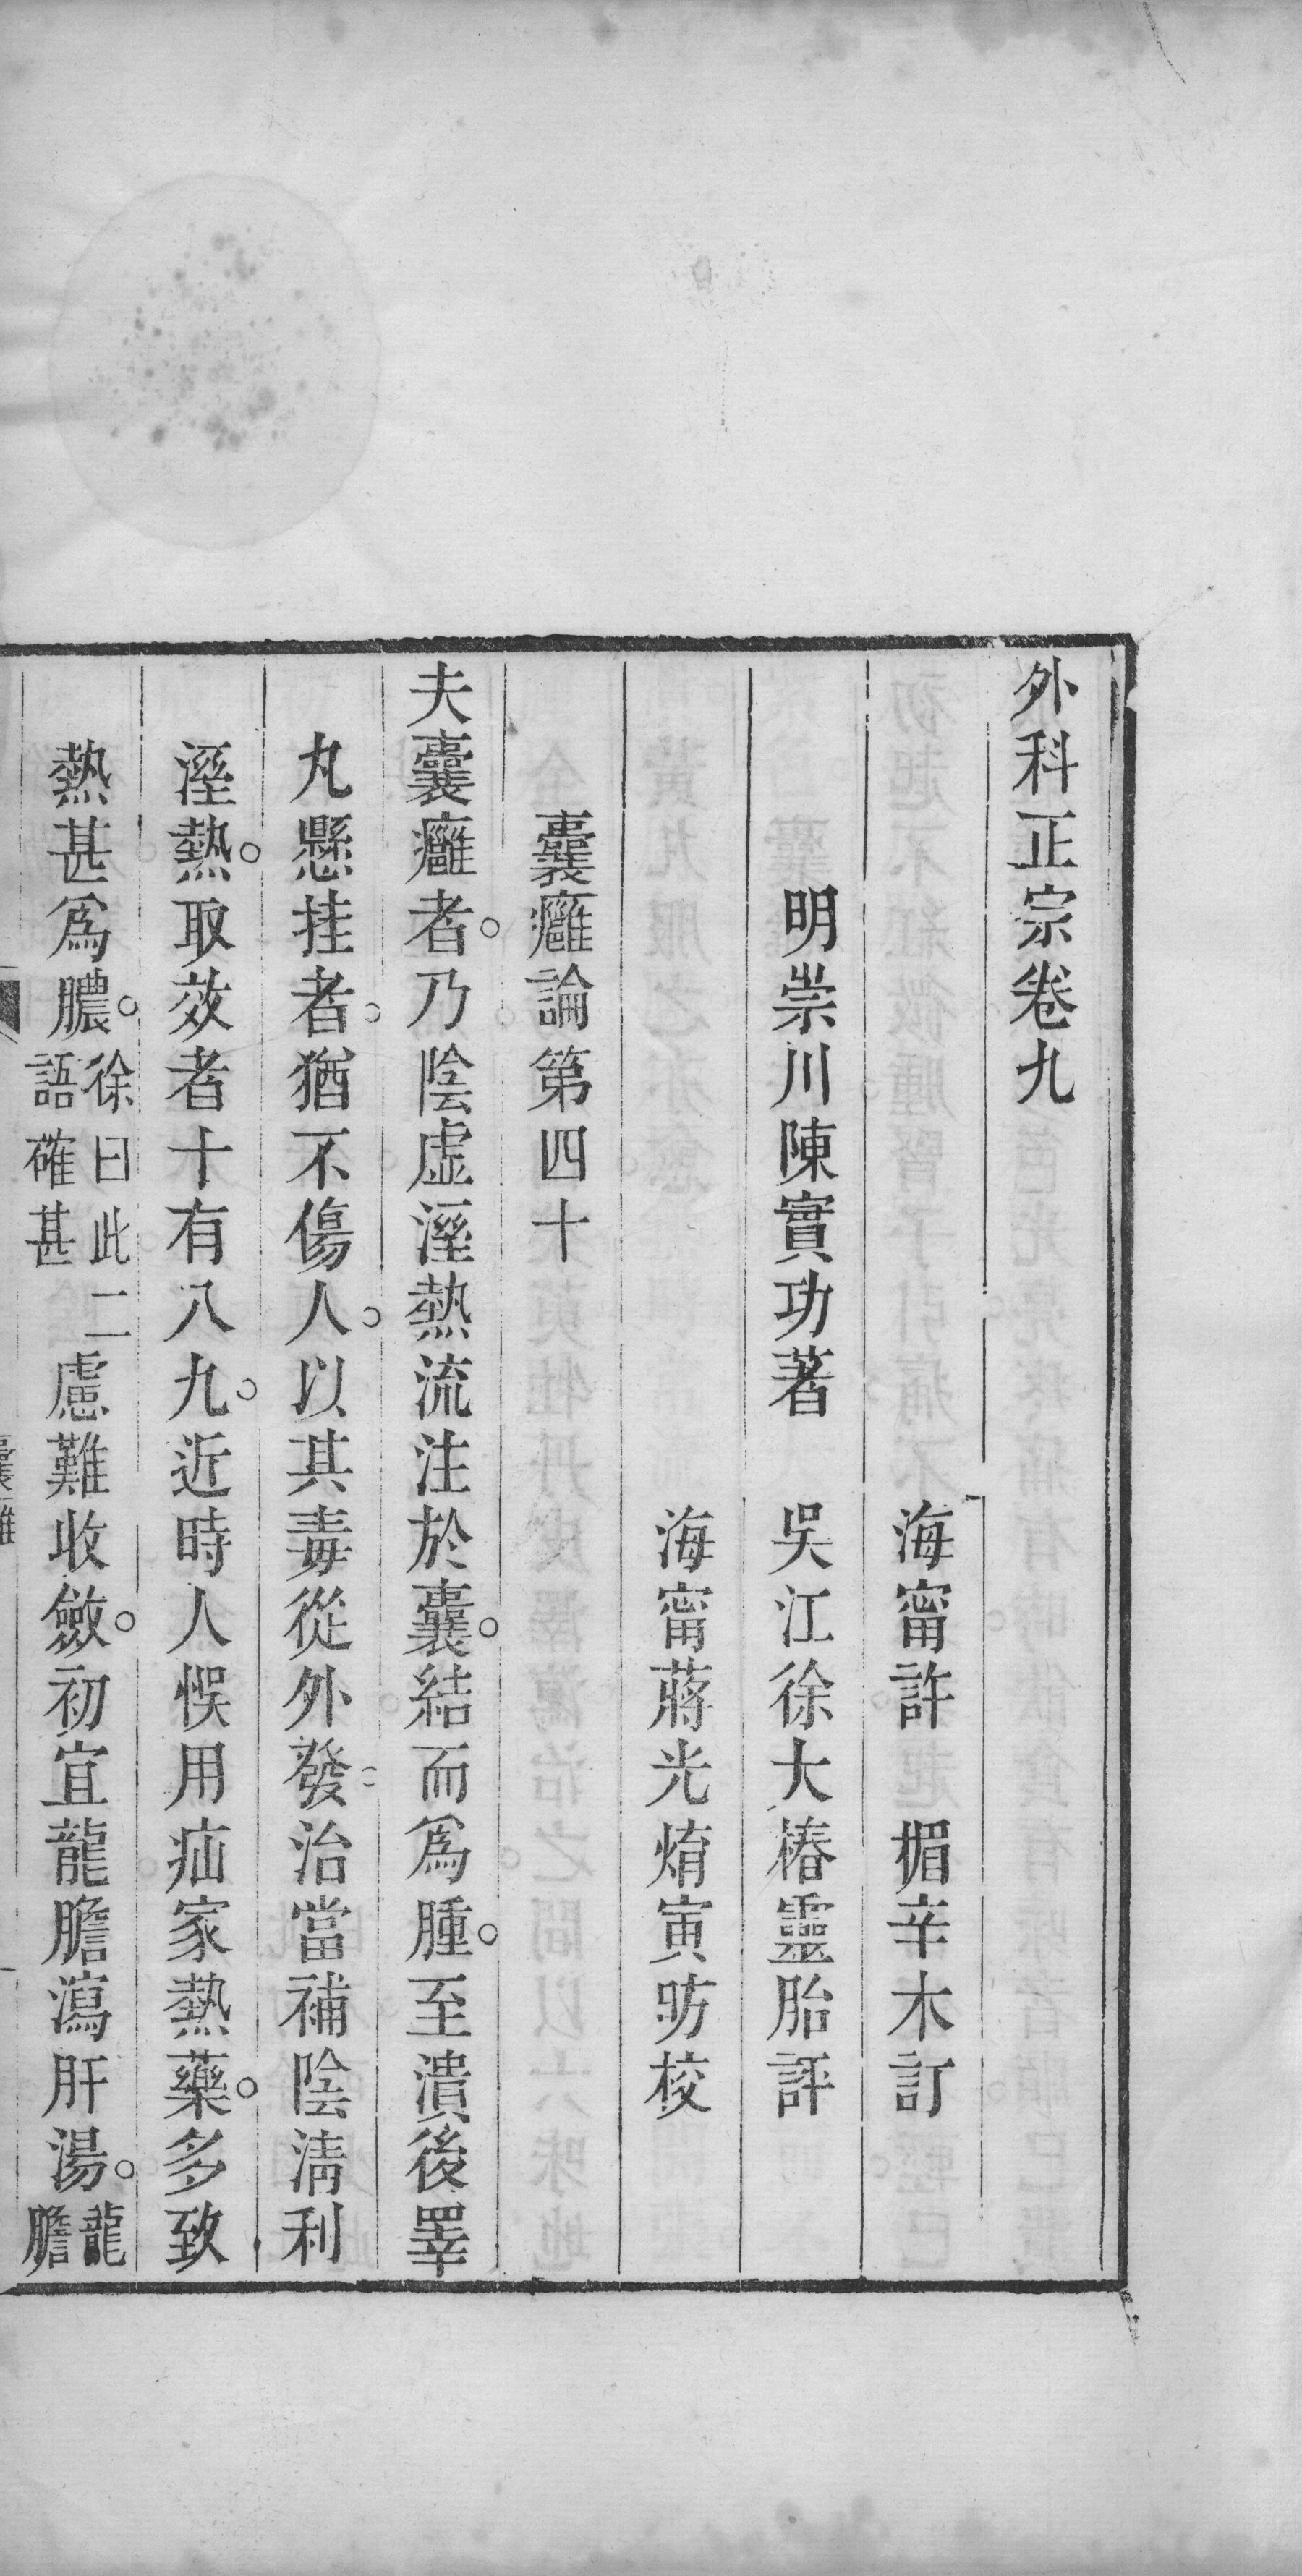 外科正宗卷九
海甯許 楣辛木訂
明崇川陳實功著 吳江徐大椿靈胎評
海甯蔣光焴寅昉校
囊癰論第四十
夫囊癰者。乃陰虛溼熱流注於囊。結而爲腫。至潰後睪
丸懸挂者。猶不傷人。以其毒從外發。治當補陰淸利
溼熱。取效者十有八九。近時人悞用疝家熱藥。多致
熱甚爲膿。徐曰此二語確甚慮難收斂。初宜龍膽瀉肝湯。龍膽
囊癰